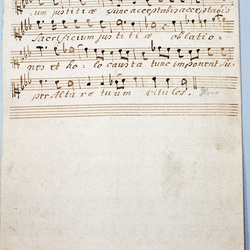 um justitiæ tunc acceptabis acceptabis
Sacrificium justitiæ oblatio-
nes et ho- lo causta tunc imponent su-
per Altare tuum vitulos.